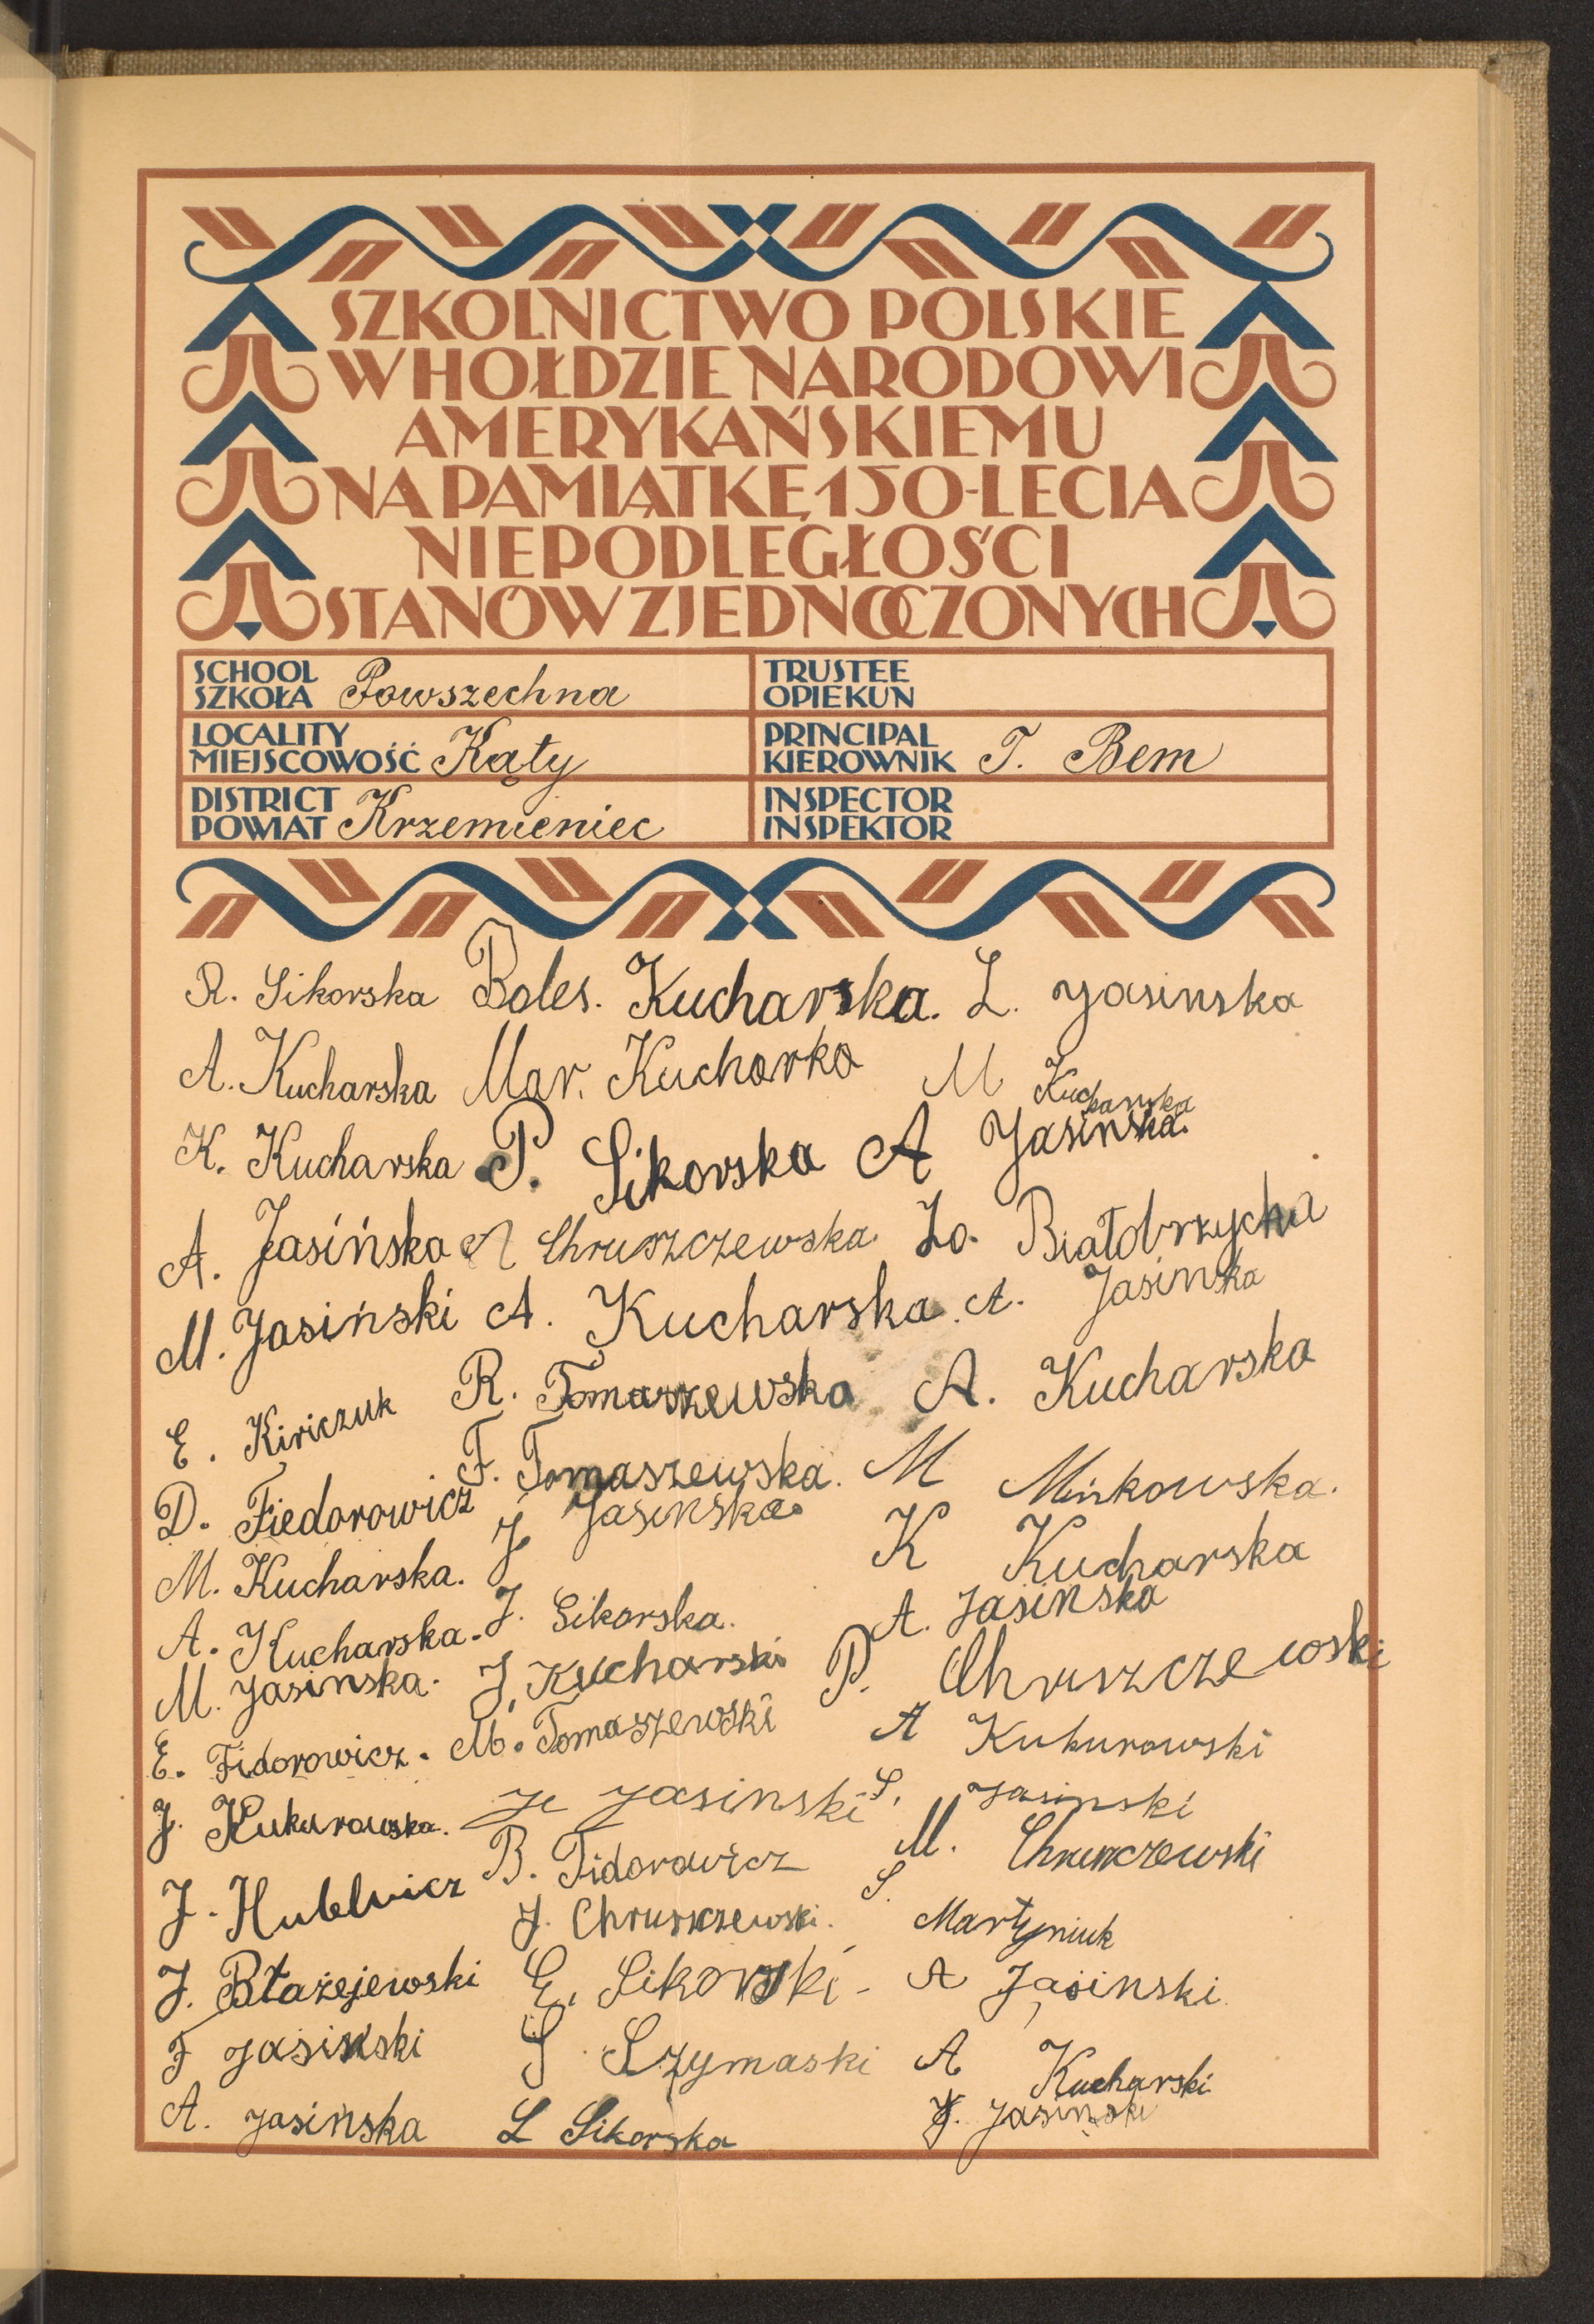 SZKOLNICTWO POLSKIE
W HOŁDZIE NARODOWI
AMERYKAŃSKIEMU
NA PAMIĄTKĘ 150-LECIA
NIEPODLEGŁOŚCI
STANÓW ZJEDNOCZONYCH
SCHOOL
SZKOŁA Powszechna
TRUSTEE
OPIEKUN
LOCALITY
MIEJSCOWOŚĆ Kąty
PRINCIPAL
KIEROWNIK T. Bem
DISTRICT
POWIAT Krzemieniec
INSPECTOR
INSPEKTOR
R. Sikorska Boles. Kucharska. L. Jasinska
A. Kucharska Mar. Kucharka M Kucharska
K. Kucharska P. Sikorska A Jasinska.
A. Jasińska A Chruszczewska. Zo. Białobrzycka
M. Jasiński A. Kucharska. A. Jasinska
E. Kiriczuk R. Tomaszewska A. Kucharska
D. Fiedorowicz F. Tomaszewska. M Minkowska.
M. Kucharska. J Jasinska. K Kucharska
A. Kucharska. J. Sikorska. A. Jasinska
M. Jasinska. J. Kucharski P. Chruszczewski
E. Fidorowicz. M. Tomaszewski A Kukurowski
J. Kukurowska. Je Jasinski S. Jasinski
J. Hublewicz B. Fidorowicz M. Chruszczewski
J. Chruszczewski. S. Martyniuk
J. Błażejewski E. Sikorski - A Jasinski.
F Jasinski S. Szymaski A Kucharski
A. Jasinska L Sikorska J. Jasinski